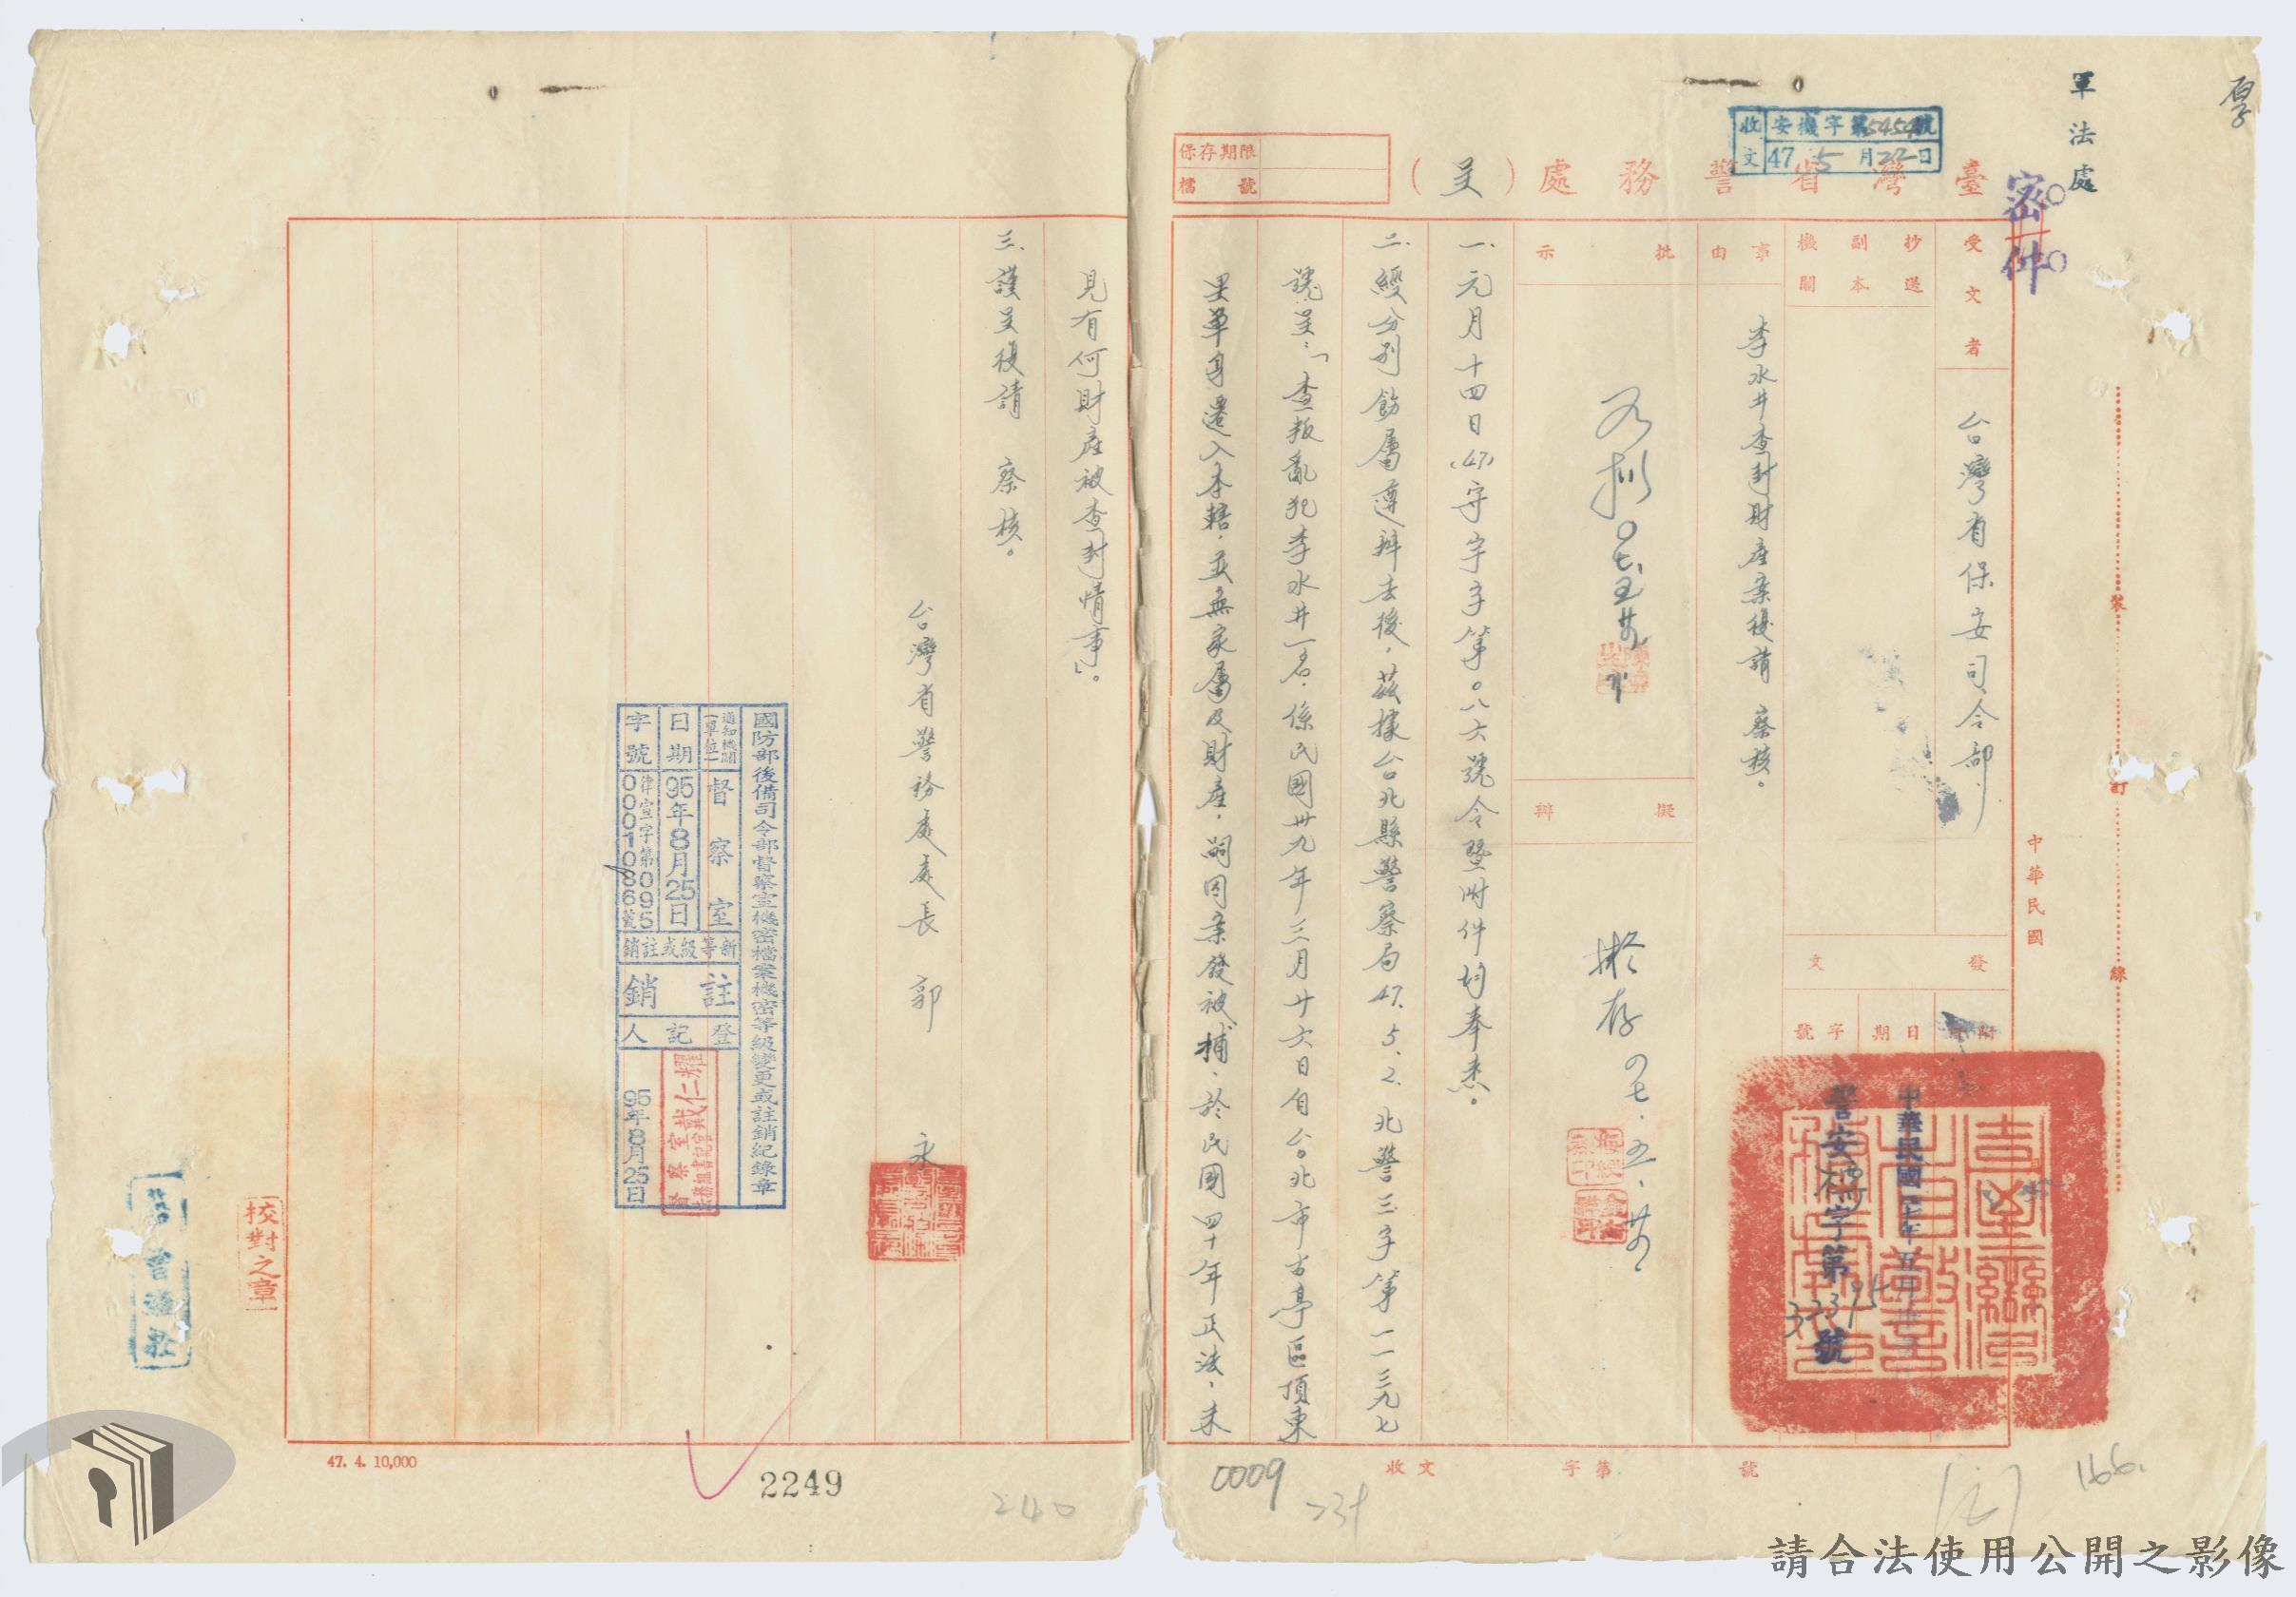 厚
軍法處
密件
收文 安機字第5454號
47 5月22日
臺灣省警務處（呈）
保存期限
檔號
受文者
台灣省保安司令部
抄送副本機關
發文
日期
字號
中華民國
中華民國四七年五月廿
警安 字第33395號
事由
李水井查封財產案復請 察核。
批示
擬辦
擬存
一、元月十四日(47)守宇字第〇八六號令暨附件均奉悉。
二、經分別飭屬遵辦去後，茲據台北縣警察局47.5.2.北警三字第一一三九七
號呈：「查叛亂犯李水井一名，係民國卅九年三月廿六日自台北市古亭區頂東
里單身遷入本轄，並無家屬及財產，嗣因案發被捕，於民國四十年正法，未
見有何財產被查封情事」。
三、謹呈復請 察核。
台灣省警務處處長 郭 永
國防部後備司令部督察室機密檔案機密等級變更或註銷紀錄章
通知機關(單位) 督察室
日期 95年8月25日
字號 律宣字第0950001086號
新等級或註銷
註銷
登記人
督察室 戴仁耀
95年8月25日
校對之章
裝
訂
線
收文 字第 號
47. 4. 10,000
2249
240
0009
239
166.
請合法使用公開之影像